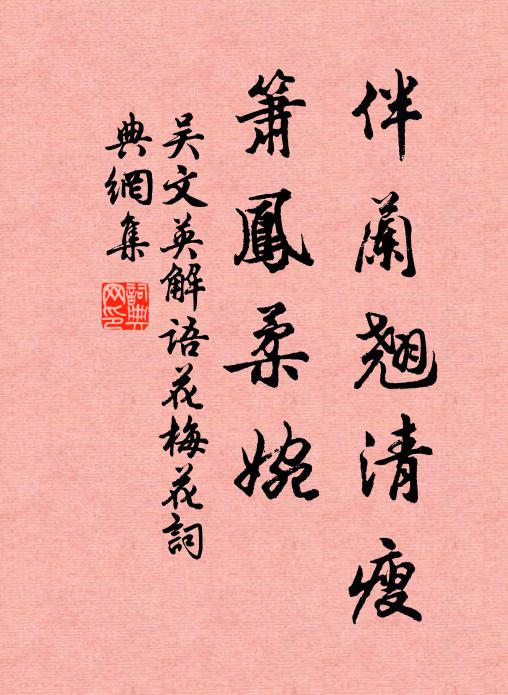 伴蘭翹清瘦
簫鳳柔婉
吴文英解語花梅花詞
典網集
詞典網印